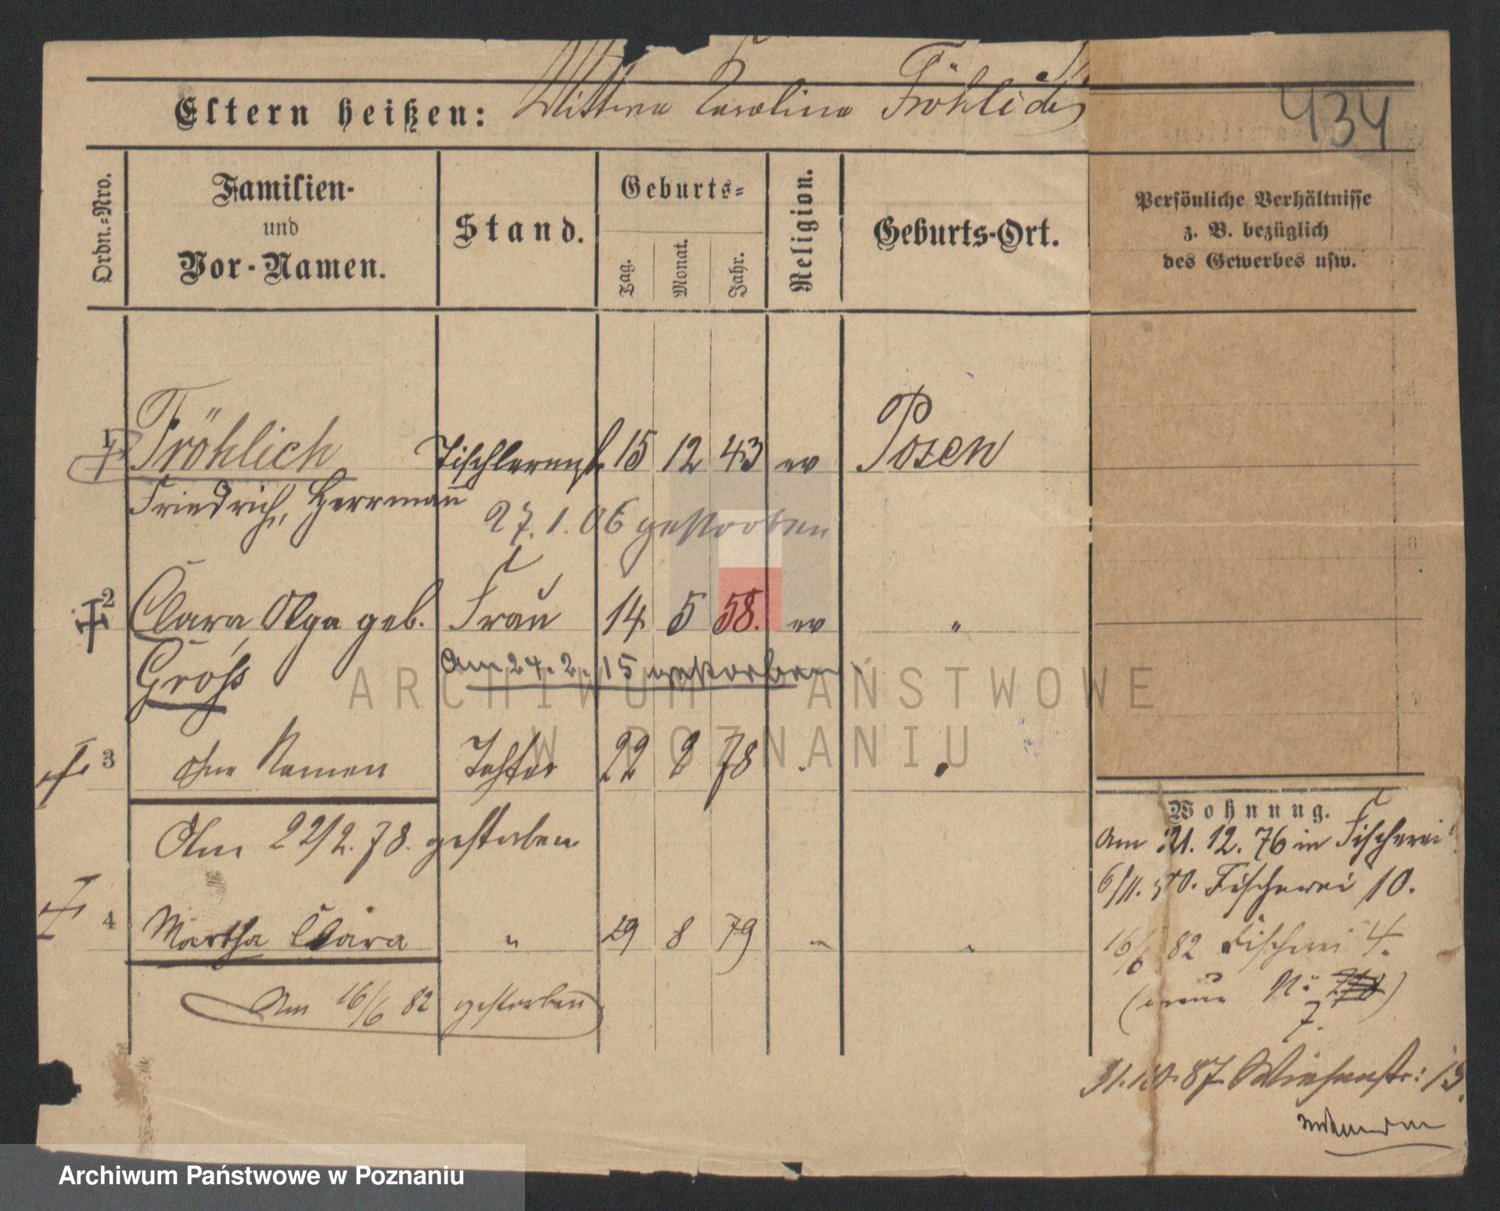 Eltern heißen: Wittwe Carolina Fröhlich
434
Ordn.-Nro.
Familien-
und
Vor-Namen.
Stand.
Geburts-
Tag.
Monat.
Jahr.
Religion.
Geburts-Ort.
Persönliche Verhältnisse
z. B. bezüglich
des Gewerbes usw.
1 Fröhlich 15 12 43 ev Posen
Friedrich, Herrman
27.1.06 gestorben
2 Clara Olga geb. Frau 14 5 58. ev "
Groß
Am 24.2.15 gestorben
3 ohne Namen Tochter 22 2 78 "
Am 22/2.78. gestorben
4 Martha Clara " 29 8 79 " "
Am 16/6 82 gestorben
Wohnung.
Am 21.12.76 in Fischerei
Fischerei 10.
16/6 82 Fischerei 4.
(neue No
7.
31.10.87 Wiesenstr: 13.
ARCHIWUM PAŃSTWOWE
W POZNANIU
Archiwum Państwowe w Poznaniu